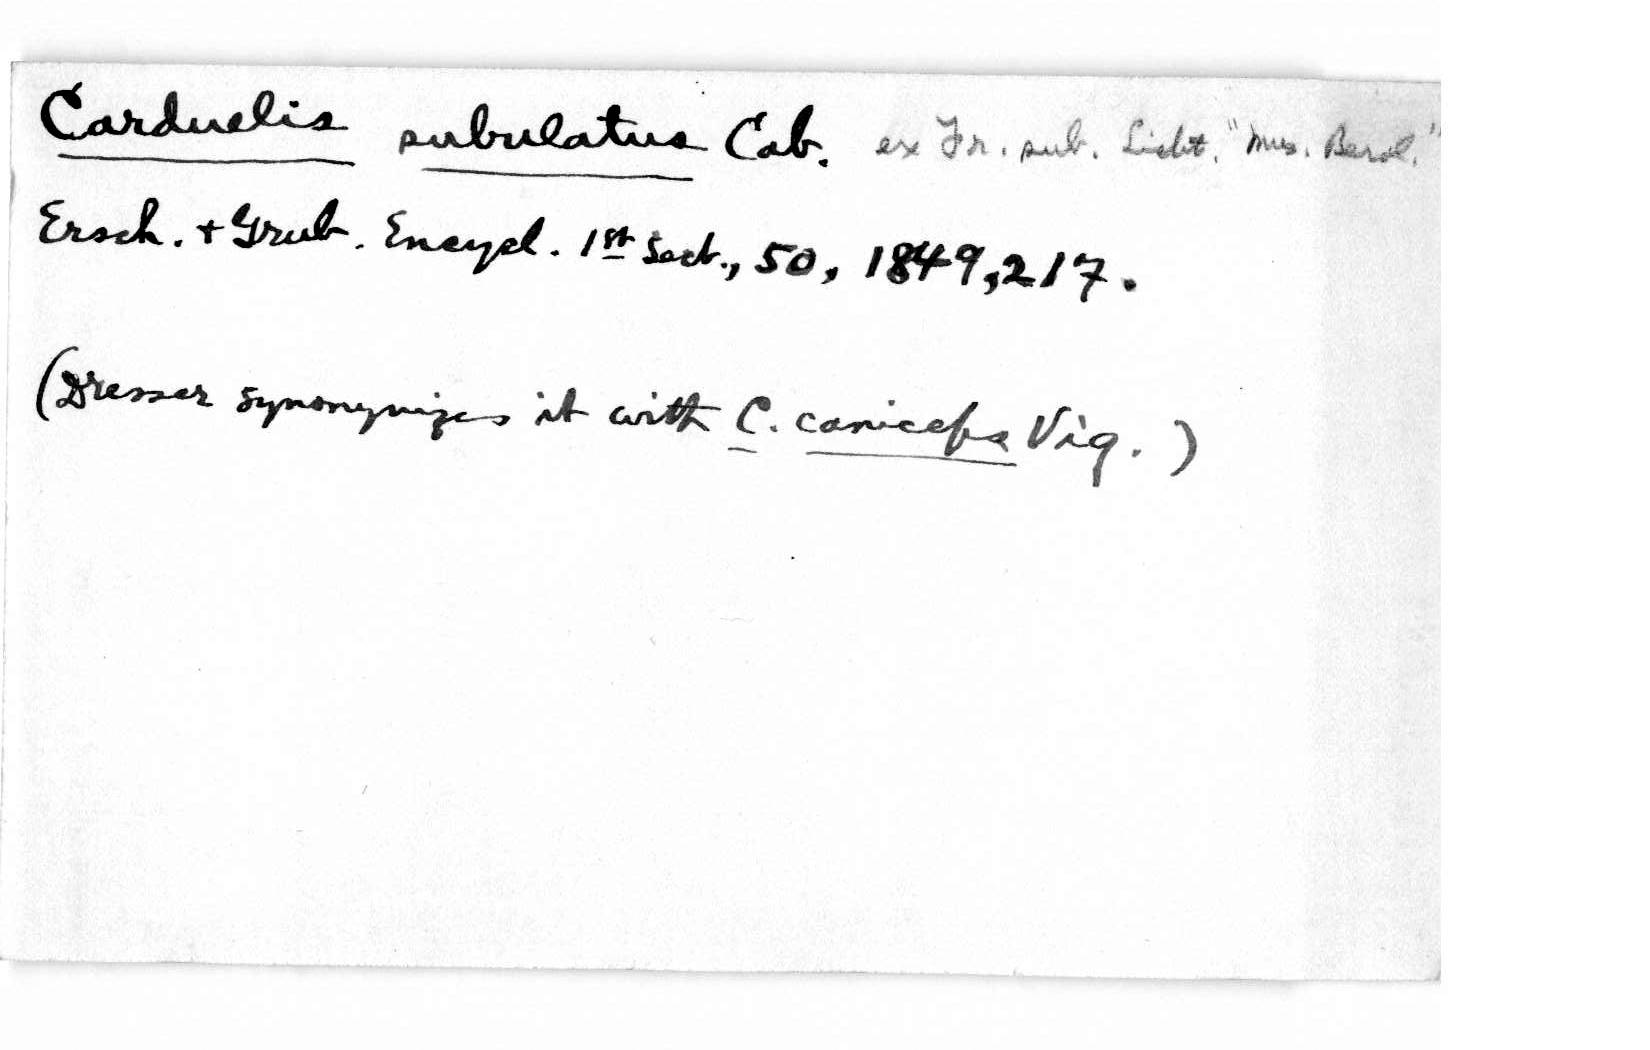 Carduelis subulatus Cab. ex Fr. sub. Licht. "Mus. Berol."
Ersch. + Grub. Encycl. 1st Sect., 50, 1849, 217.
(Dresser synonymizes it with C. caniceps Vig.)